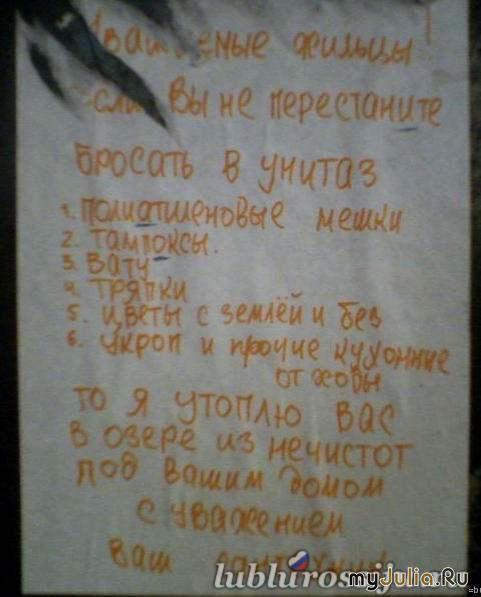 Уважаемые жильцы!
Если Вы не перестаните
бросать в унитаз
1. полиатиленовые мешки
2. Тампоксы.
3. Вату
4. Тряпки
5. цветы с землёй и без
6. укроп и прочие кухонние
отходы
то я утоплю вас
в озере из нечистот
под вашим домом
с уважением
Ваш
lublurossiju
myJulia.Ru